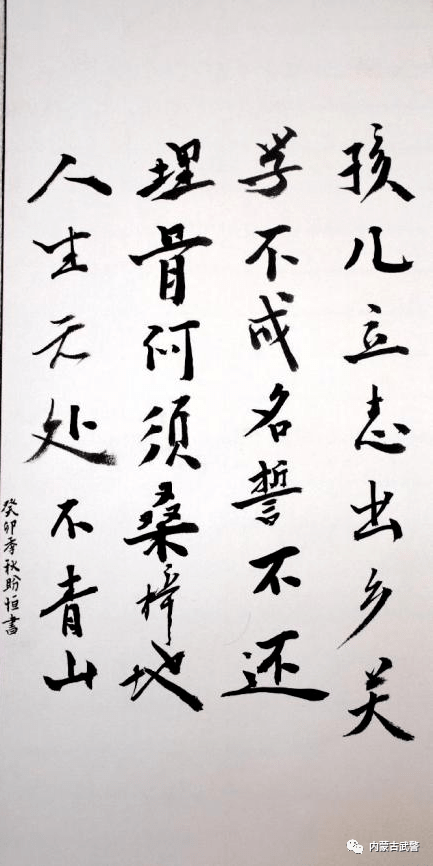 孩儿立志出乡关
学不成名誓不还
埋骨何须桑梓地
人生无处不青山
癸卯季秋盼恒書
内蒙古武警